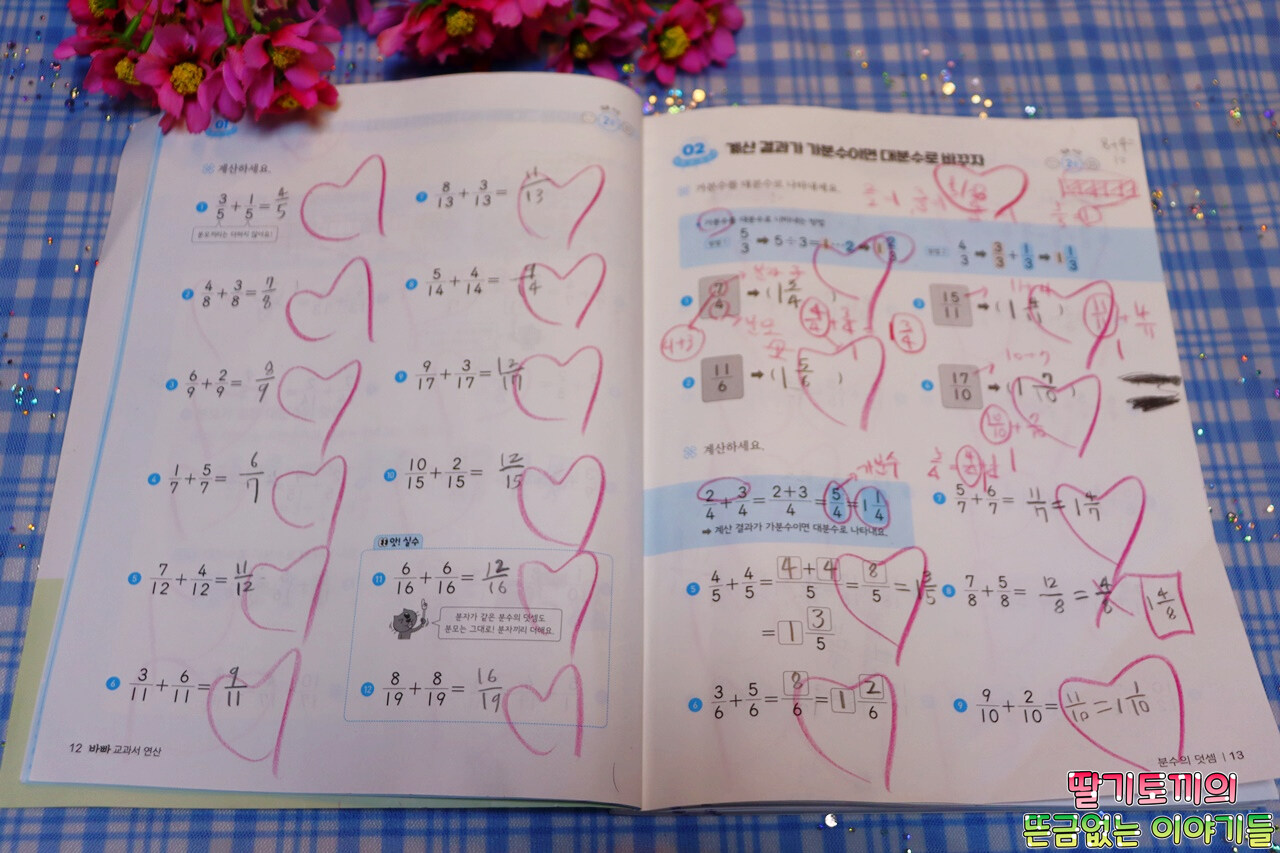 01
계산하세요.
1 3/5 + 1/5 = 4/5
분모끼리는 더하지 않아요!
2 4/8 + 3/8 = 7/8
3 6/9 + 2/9 = 8/9
4 1/7 + 5/7 = 6/7
5 7/12 + 4/12 = 11/12
6 3/11 + 6/11 = 9/11
7 8/13 + 3/13 = 11/13
8 5/14 + 4/14 =
9 9/17 + 3/17 = 12/17
10 10/15 + 2/15 = 12/15
앗! 실수
11 6/16 + 6/16 = 12/16
분자가 같은 분수의 덧셈도
분모는 그대로! 분자끼리 더해요.
12 8/19 + 8/19 = 16/19
12 바빠 교과서 연산
02 계산 결과가 가분수이면 대분수로 바꾸자
가분수를 대분수로 나타내세요.
가분수를 대분수로 나타내는 방법
방법 1 5/3 ➡ 5÷3=1…2 ➡ 1 2/3
방법 2 4/3 ➡ 3/3 + 1/3 ➡ 1 1/3
1 ➡ (
4+3
3/4
2 11/6 ➡ (1 5/6)
3 15/11 ➡ (1 4/11)
4 17/10 ➡ (1 7/10)
계산하세요.
가분수
2/4 + 3/4 = 2+3/4 = 5/4 = 1 1/4
➡ 계산 결과가 가분수이면 대분수로 나타내요.
5 4/5 + 4/5 = 4+4/5 = 8/5 = 1 3/5
= 1 3/5
6 3/6 + 5/6 = 8/6 = 1 2/6
7 5/7 + 6/7 = 11/7 = 1 4/7
8 7/8 + 5/8 = 12/8 = 1 4/8
9 9/10 + 2/10 = 11/10 = 1 1/10
분수의 덧셈 | 13
딸기토끼의
뜬금없는 이야기들